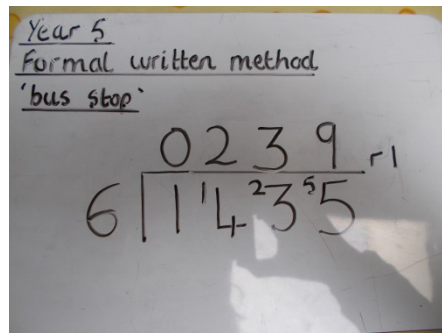 Year 5
Formal written method
'bus stop'
0239 r1
6 1 ¹4 ²3 ⁵5